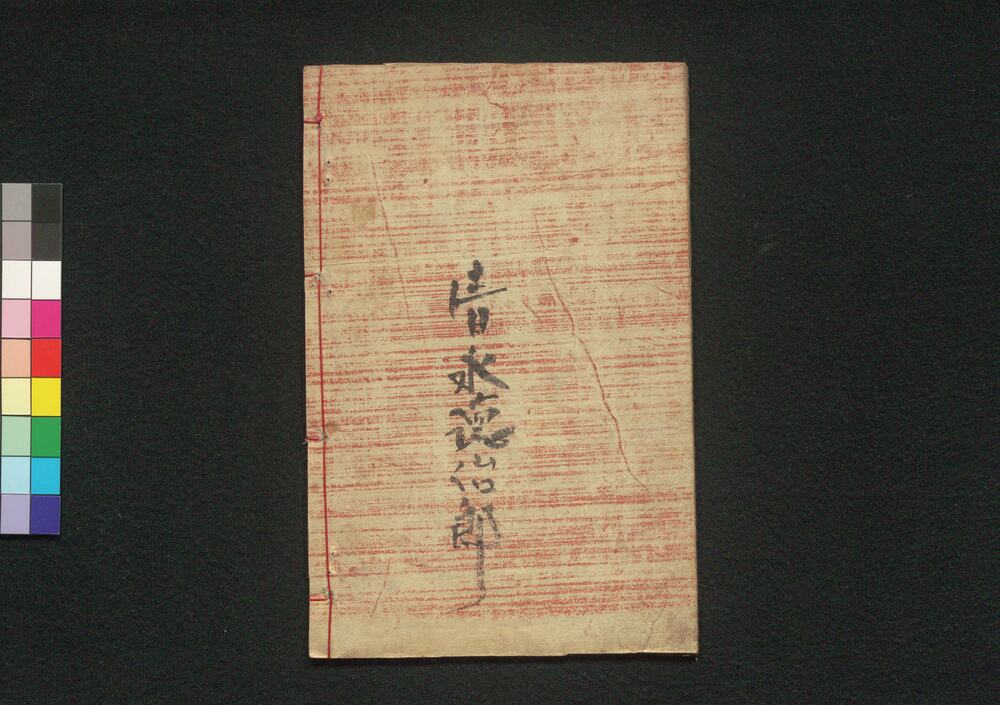 清水徳治郎